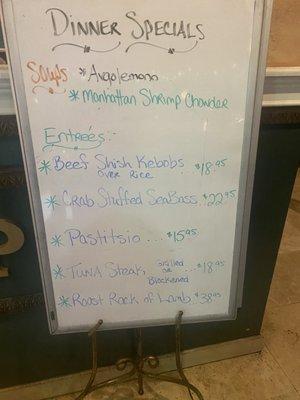 Dinner Specials
Soups * Avgolemono
* Manhattan Shrimp Chowder
Entreés:-
* Beef Shish Kebobs
over Rice ... $18.95
* Crab Stuffed SeaBass.. $22.95
* Pastitsio .... $15.95
* Tuna Steak, Grilled or Blackened ... $18.95
* Roast Rack of Lamb.. $38.95